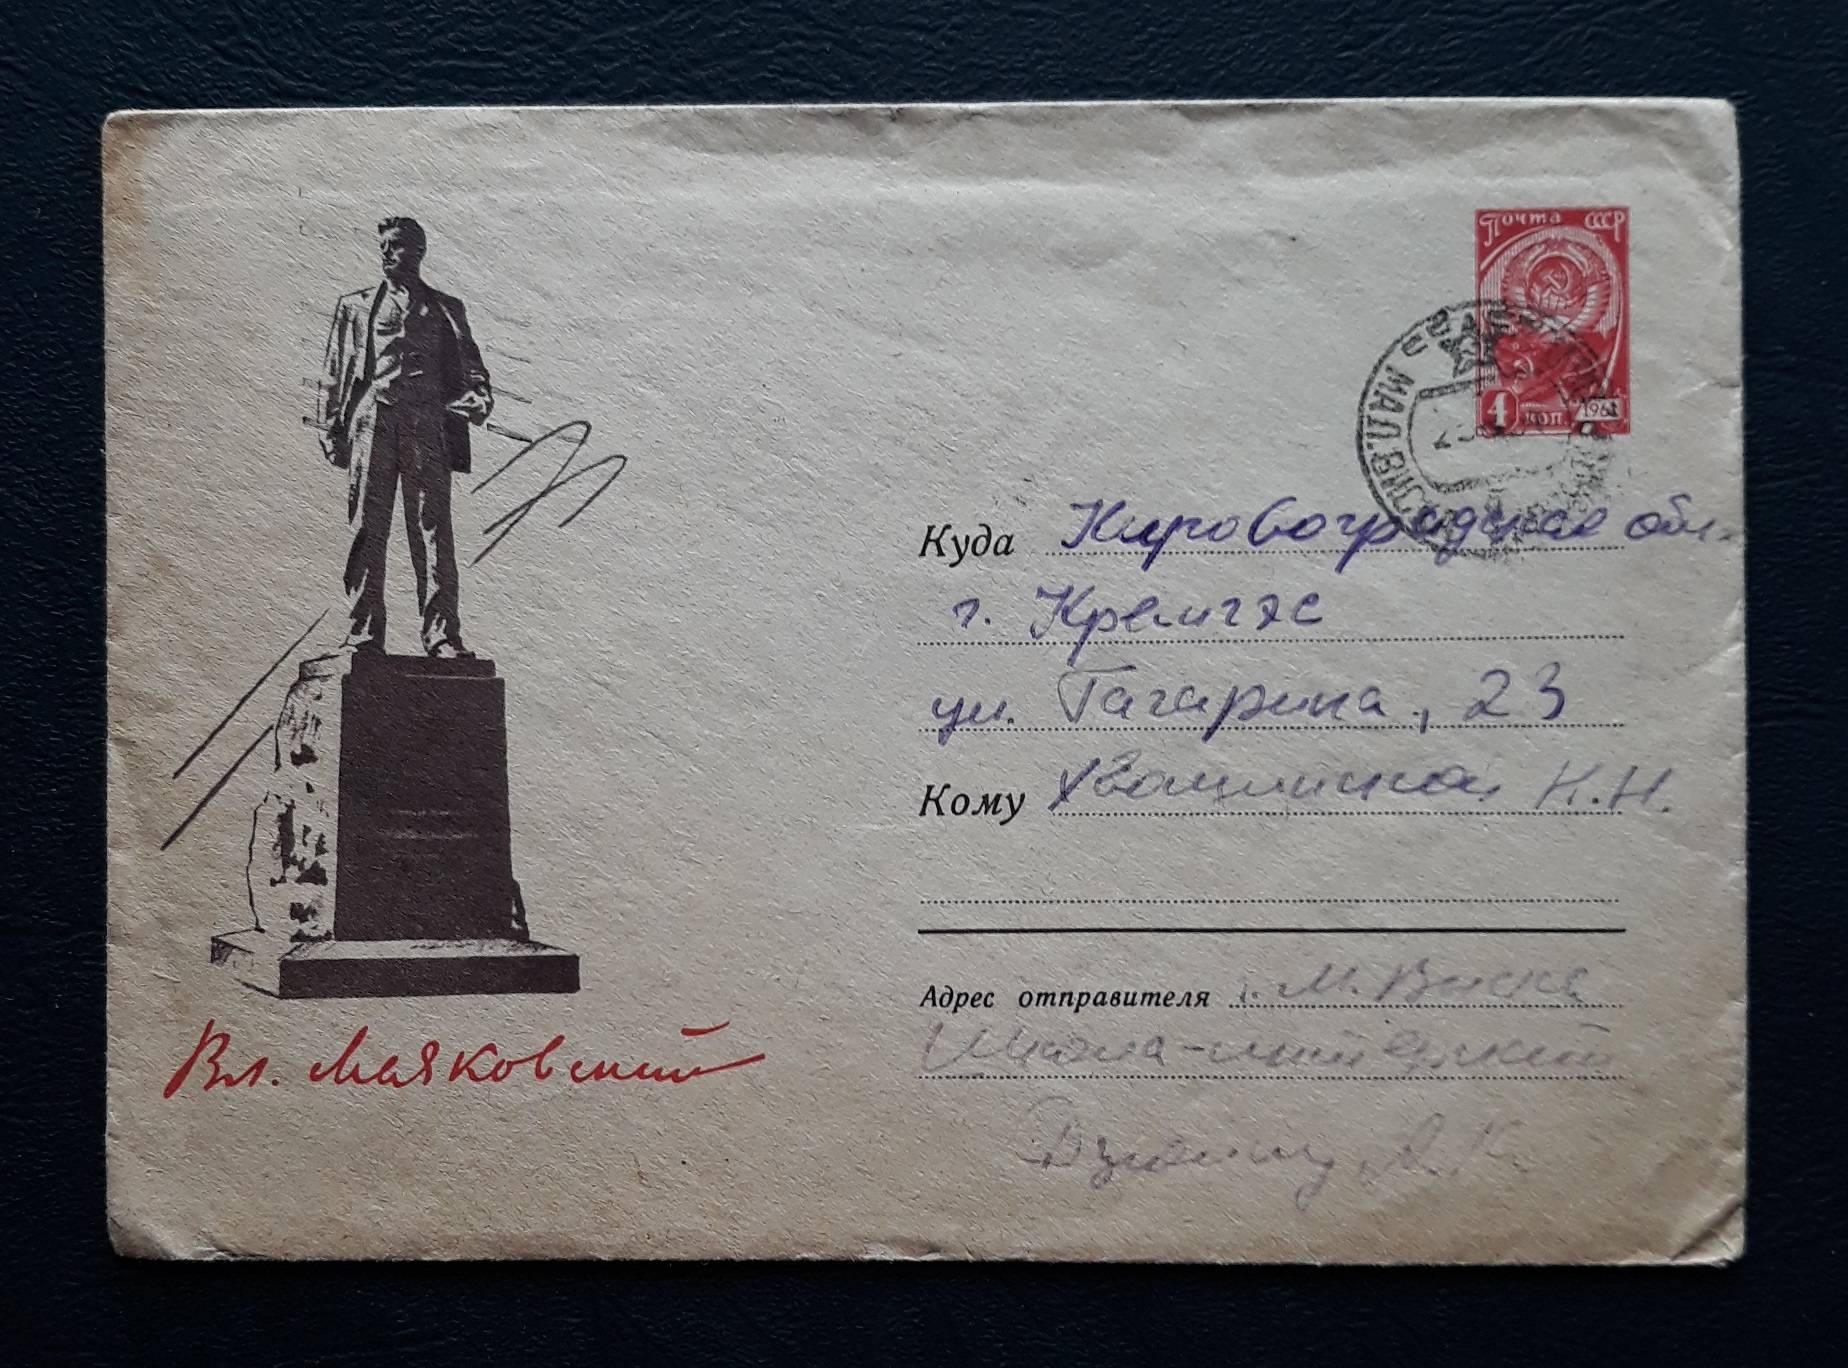 Почта СССР
4 коп. 1961
МАЛ.ВИСКА
Куда Кировоградская обл.
г. Кремгэс
ул. Гагарина, 23
Кому К.Н.
Адрес отправителя г. М. Виска
Школа-интернат
А.К.
Вл. Маяковский